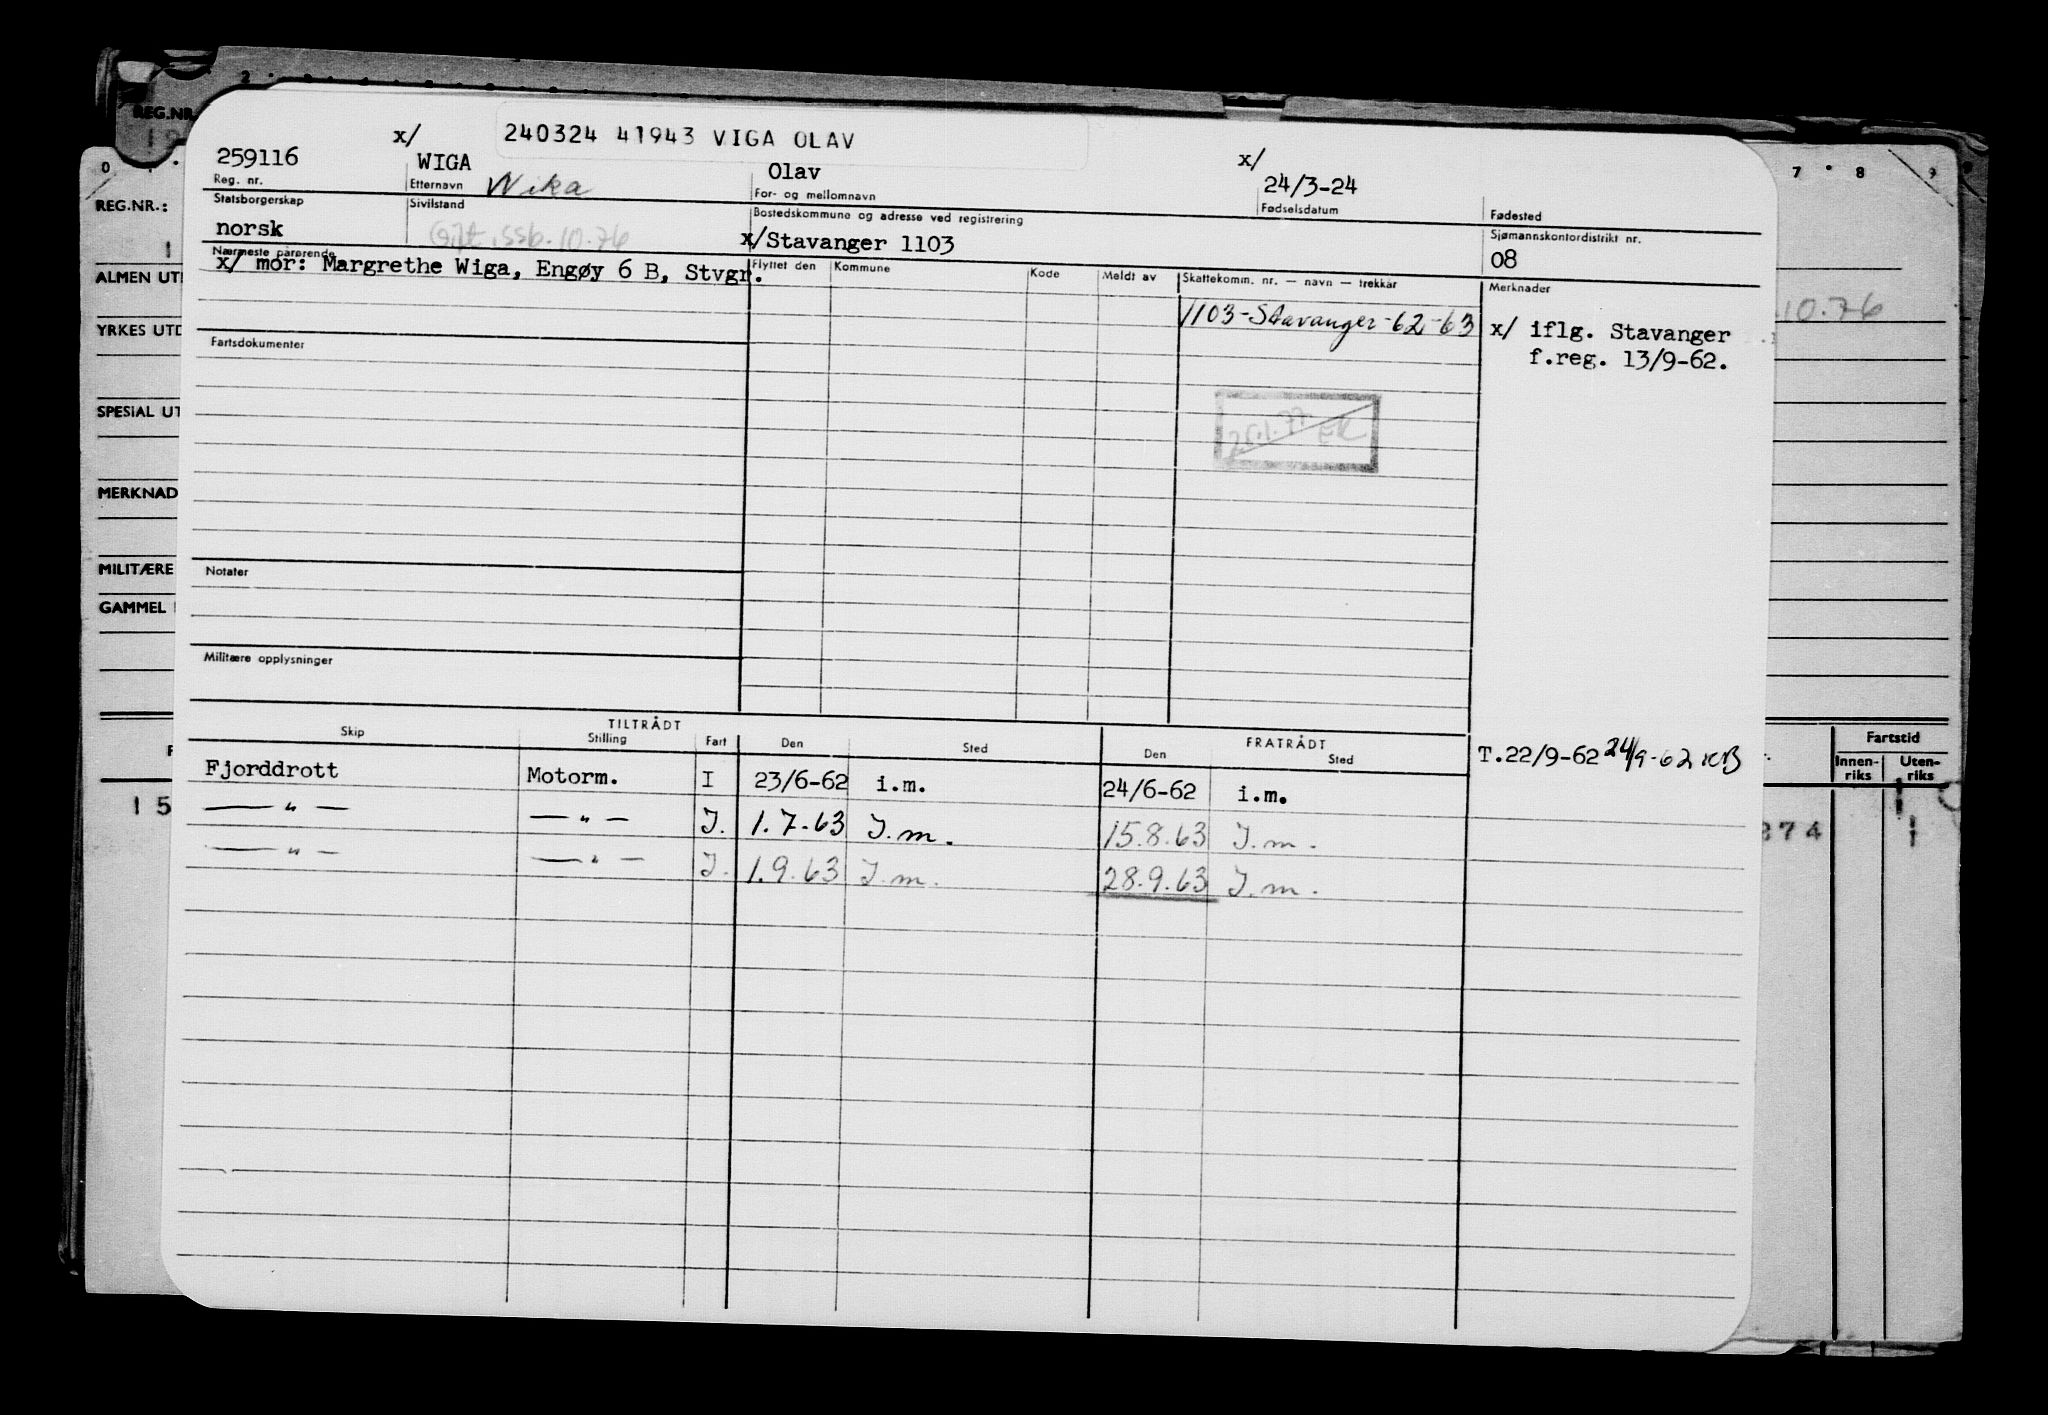 x/ 240324 41943 VIGA OLAV
259116 WIGA Olav x/ 24/3-24
Reg. nr. Etternavn Wika For- og mellomnavn Fødselsdatum Fødested
Statsborgerskap Sivilstand Bostedskommune og adresse ved registrering Sjømannskontordistrikt nr.
norsk Gift, ssb. 10.76 x/Stavanger 1103 08
Nærmeste pårørende Flyttet den Kommune Kode Meldt av Skattekomm. nr. — navn — trekkår Merknader
x/ mor: Margrethe Wiga, Engøy 6 B, Stvgr.
1103-Stavanger-62-63 x/ iflg. Stavanger
f.reg. 13/9-62.
Fartsdokumenter
EK
Notater
Militære opplysninger
TILTRÅDT FRATRÅDT
Skip Stilling Fart Den Sted Den Sted
T.22/9-62 24/9-62 KB
Fjorddrott Motorm. I 23/6-62 i.m. 24/6-62 i.m.
— " — — " — I. 1.7.63 I.m. 15.8.63 I.m.
— " — — " — I. 1.9.63 I.m. 28.9.63 I.m.
REG.NR.
REG.NR.:
ALMEN UT
YRKES UTD
SPESIAL UT
MERKNAD
MILITÆRE
GAMMEL
15
7 8 9
10.76
Fartstid
Innen-riks Uten-riks
274